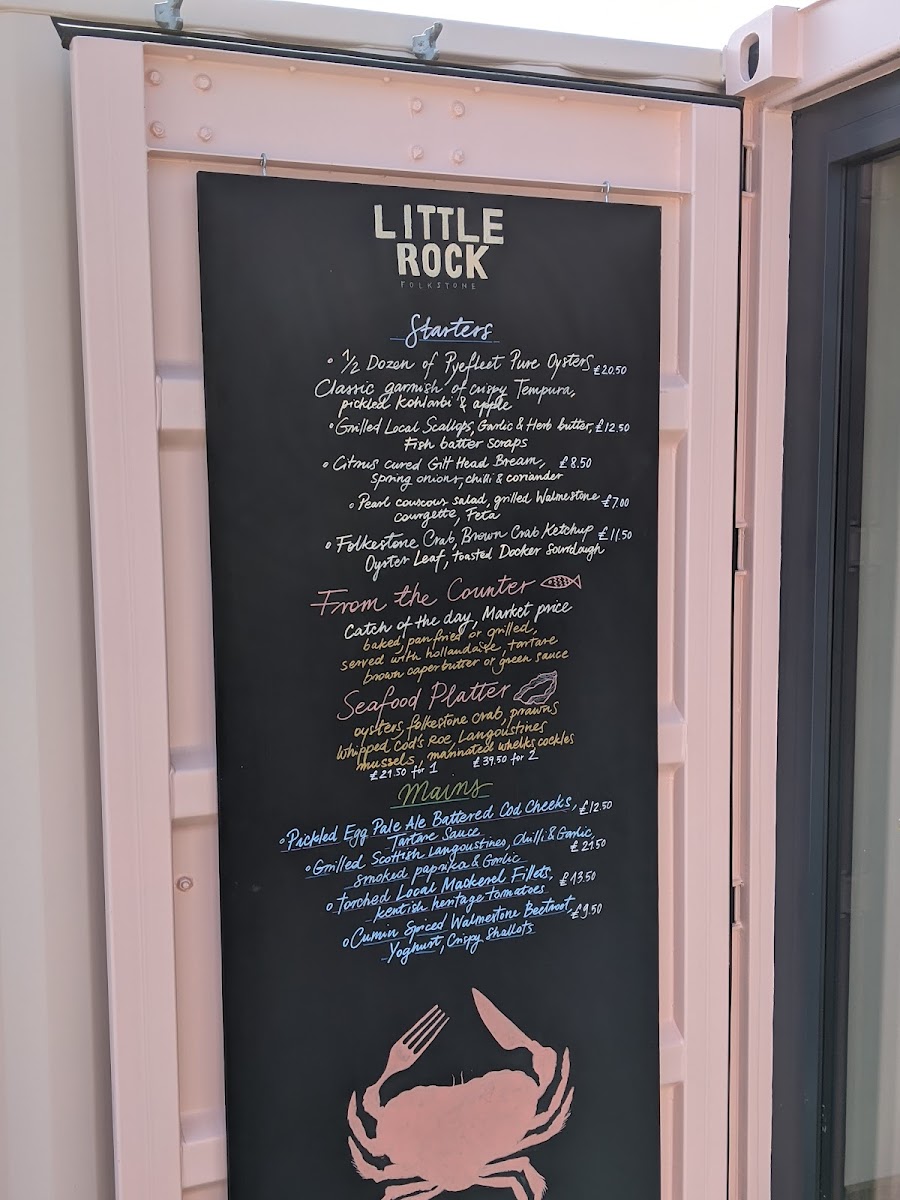 LITTLE
ROCK
FOLKSTONE
Starters
° 1/2 Dozen of Pyefleet Pure Oysters £20.50
Classic garnish of crispy Tempura,
pickled kohlarbi & apple
° Grilled Local Scallops, Garlic & Herb butter, £12.50
Fish batter scraps
° Citrus cured Gilt Head Bream, £8.50
spring onions, chilli & coriander
° Pearl couscous salad, grilled Walmestone £7.00
courgette, Feta
° Folkestone Crab, Brown Crab Ketchup £11.50
Oyster Leaf, toasted Docker Sourdough
From the Counter
Catch of the day, Market price
baked, pan fried or grilled,
served with hollandaise, tartare
brown caper butter or green sauce
Seafood Platter
oysters, folkestone crab, prawns
whipped Cod's Roe, Langoustines
mussels, marinated whelks, cockles
£21.50 for 1 £39.50 for 2
Mains
° Pickled Egg Pale Ale Battered Cod Cheeks, £12.50
Tartare Sauce
° Grilled Scottish Langoustines, Chilli & Garlic, £21.50
smoked paprika & Garlic
° Torched Local Mackerel Fillets, £13.50
kentish heritage tomatoes
° Cumin Spiced Walmestone Beetroot, £9.50
Yoghurt, Crispy Shallots